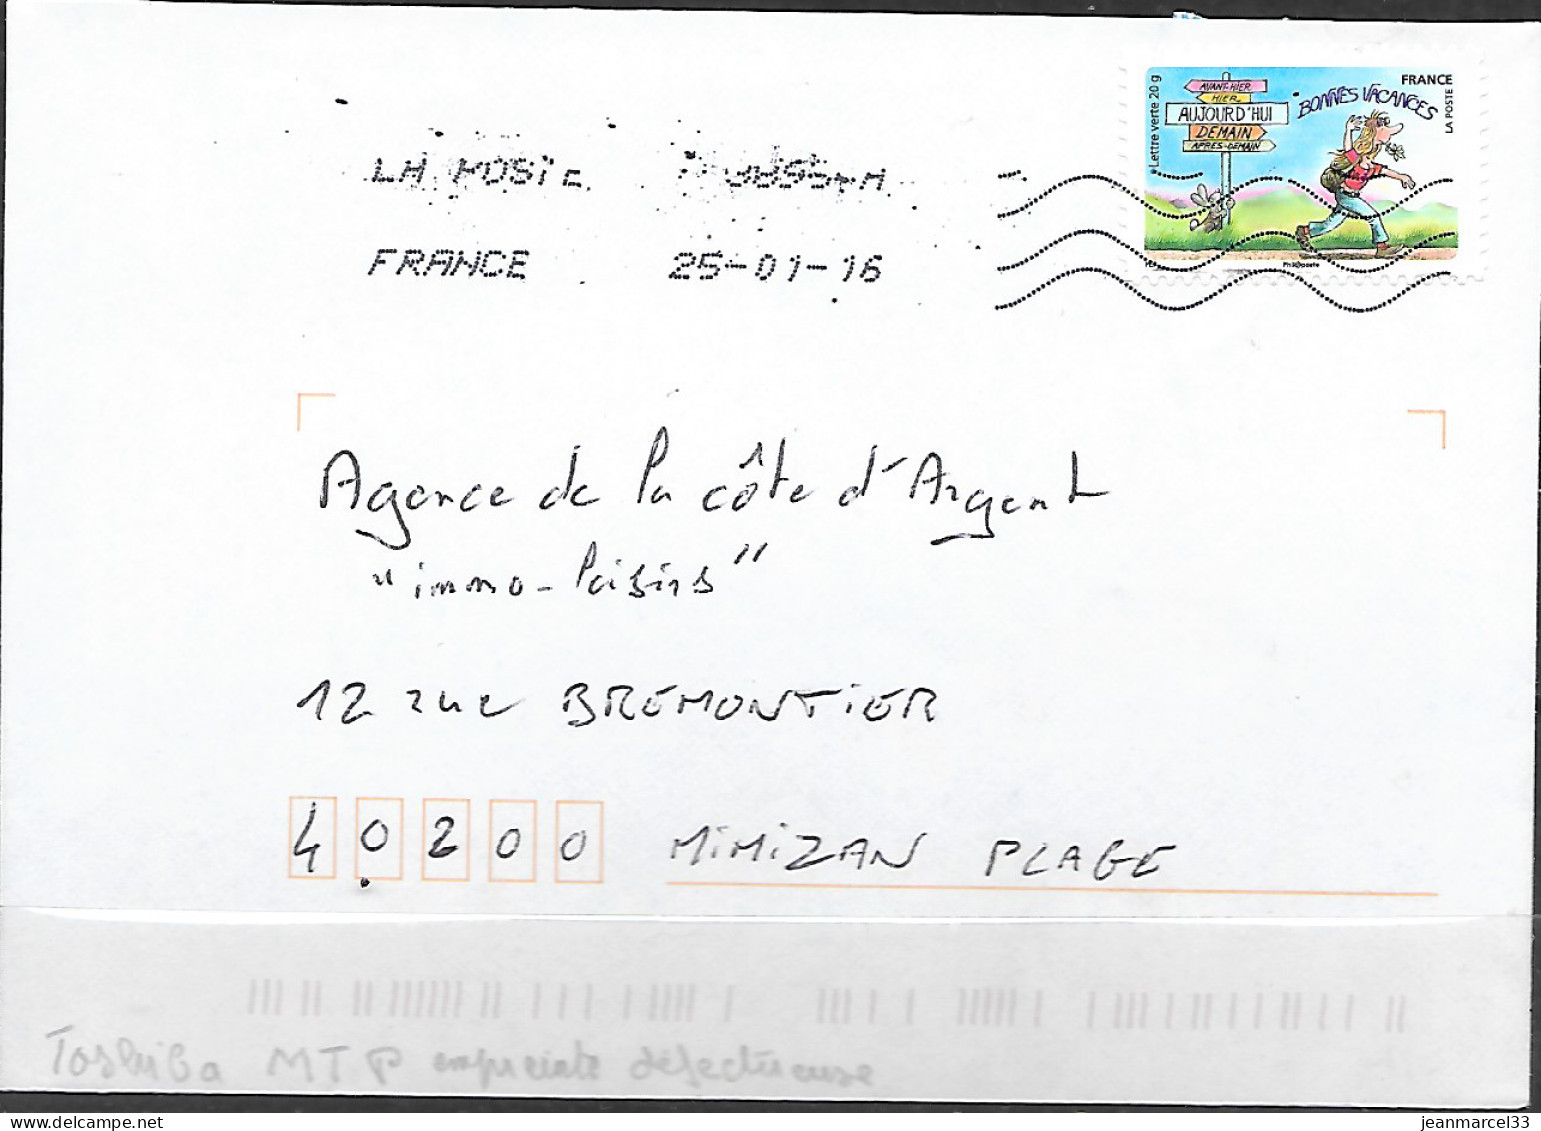 LA POSTE
FRANCE 25-01-16
Lettre verte 20 g
AVANT-HIER
HIER
AUJOURD'HUI
DEMAIN
APRES-DEMAIN
BONNES VACANCES
FRANCE
LA POSTE
Agence de la côte d'Argent
"immo-loisirs"
12 rue BREMONTIER
40200 MIMIZAN PLAGE
Toshiba MTP empreinte défectueuse
jeanmarcel33